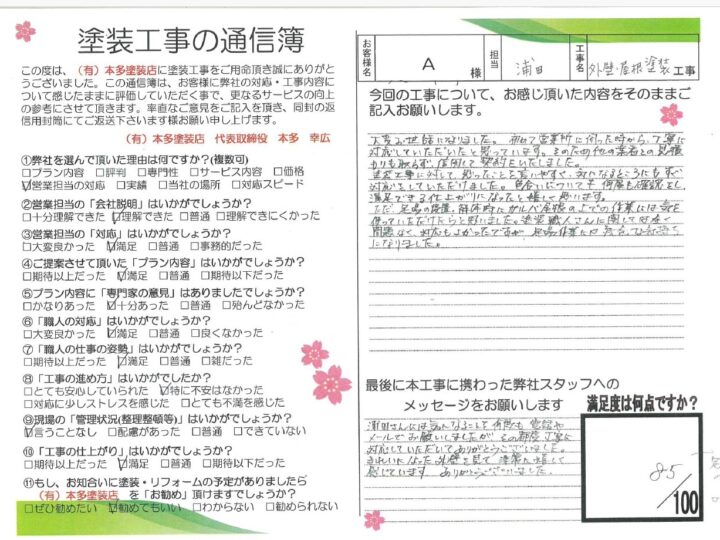 塗装工事の通信簿
この度は、(有)本多塗装店に塗装工事をご用命頂き誠にありがと
うございました。この通信簿は、お客様に弊社の対応・工事内容
について感じたままに評価していただく事で、更なるサービスの向上
の参考にさせて頂きます。率直なご意見をご記入を頂き、同封の返
信用封筒にてご返送下さいます様お願い申し上げます。
(有)本多塗装店 代表取締役 本多 幸広
①弊社を選んで頂いた理由は何ですか?(複数可)
□プラン内容 □評判 □専門性 □サービス内容 □価格
☑営業担当の対応 □実績 □当社の場所 □対応スピード
②営業担当の「会社説明」はいかがでしょうか?
□十分理解できた ☑理解できた □普通 □理解できにくかった
③営業担当の「対応」はいかがでしょうか?
□大変良かった ☑満足 □普通 □事務的だった
④ご提案させて頂いた「プラン内容」はいかがでしょうか?
□期待以上だった ☑満足 □普通 □期待以下だった
⑤プラン内容に「専門家の意見」はありましたでしょうか?
□かなりあった ☑十分あった □普通 □殆んどなかった
⑥「職人の対応」はいかがでしょうか?
□大変良かった ☑満足 □普通 □良くなかった
⑦「職人の仕事の姿勢」はいかがでしょうか?
□期待以上だった ☑満足 □普通 □雑だった
⑧「工事の進め方」はいかがでしたか?
□とても安心していられた ☑特に不安はなかった
□対応に少しストレスを感じた □とても不満を感じた
⑨現場の「管理状況(整理整頓等)」はいかがでしょうか?
☑言うことなし □配慮があった □普通 □できていない
⑩「工事の仕上がり」はいかがでしょうか?
□期待以上だった ☑満足 □普通 □期待以下だった
⑪もし、お知合いに塗装・リフォームの予定がありましたら
(有)本多塗装店 を「お勧め」頂けますでしょうか?
□ぜひ勧めたい ☑勧めてもいい □わからない □勧められない
お客様名 A 様 担当 浦田 工事名 外壁・屋根塗装 工事
今回の工事について、お感じ頂いた内容をそのままご
記入お願いします。
大変お世話になりました。初めて営業所に伺った時から、丁寧に
対応していただいたと思っています。そのため他の業者との見積
もりも取らず、信用して契約をいたしました。
塗装工事に対して、思ったことを言いやすく、気になるところもすぐ
対応をしていただけました。色合いについても何度も確認をし、
満足できる仕上がりになったと嬉しく思います。
ただ足場の設置、解体時にカーポート屋根の上での作業には気を
使っていただけたらと思いました。塗装職人さんに関しては全く
問題なく、対応もよかったですが
になりました。
最後に本工事に携わった弊社スタッフへの
メッセージをお願いします
浦田さんには気になることを何度も電話や
メールでお願いしましたが、その都度丁寧に
対応していただいてありがとうございました。
きれいになった外壁を見て、大変嬉しく
感じています。ありがとうございました。
満足度は何点ですか?
85
/100